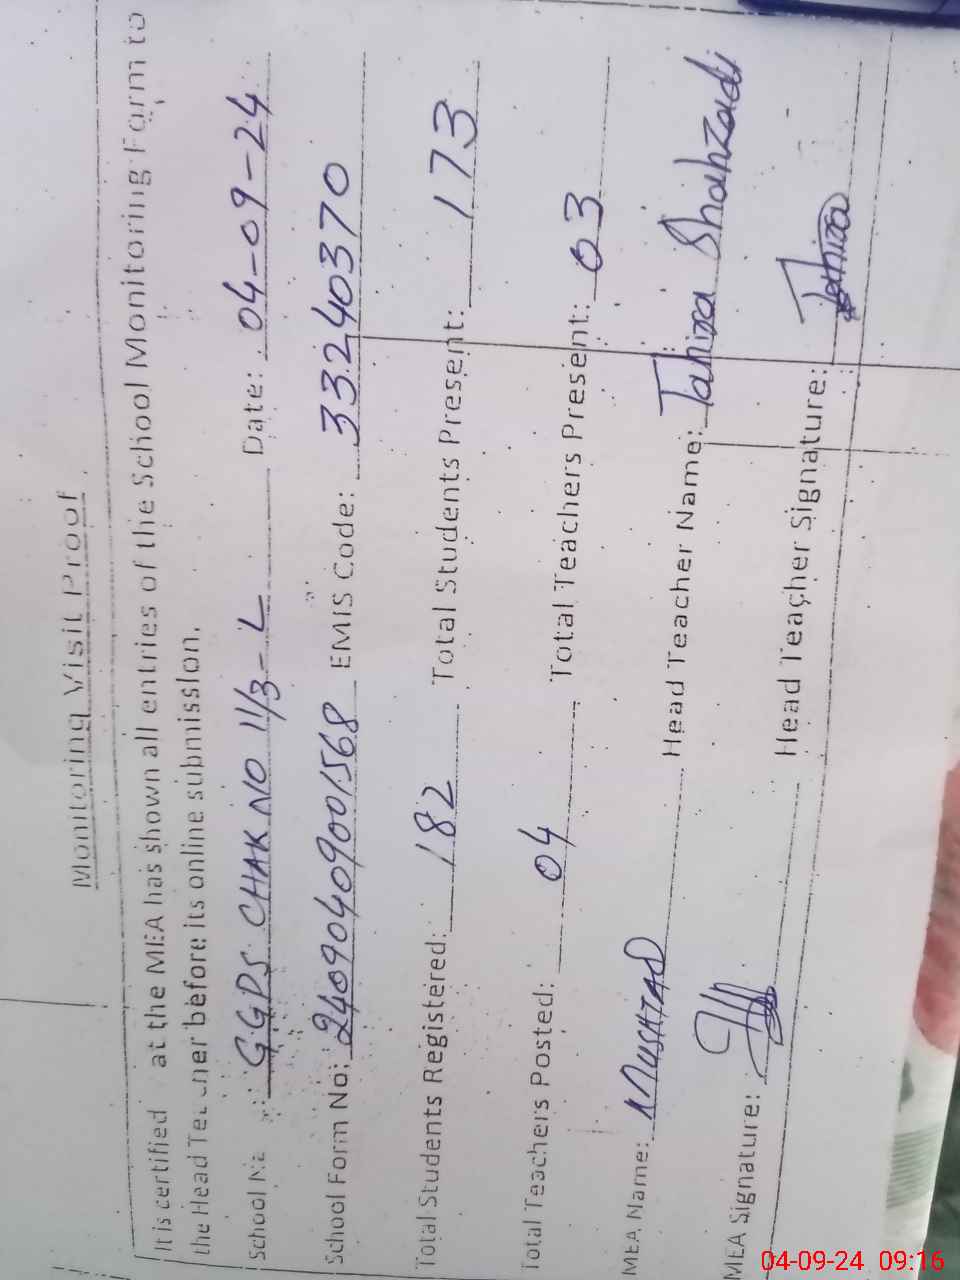 Monitoring Visit Proof
It is certified at the MEA has shown all entries of the School Monitoring Form to
the Head before its online submission.
School GGPS CHAK NO 11/3-L Date: 04-09-24
School Form No: 24090409001568 EMIS Code: 33240370
Total Students Registered: 182 Total Students Present: 173
Total Teachers Posted: 04 Total Teachers Present: 03
MEA Name: MUSHTAQ Head Teacher Name: Tahira Shahzadi
MEA Signature: Head Teacher Signature: Tahira
04-09-24 09:16